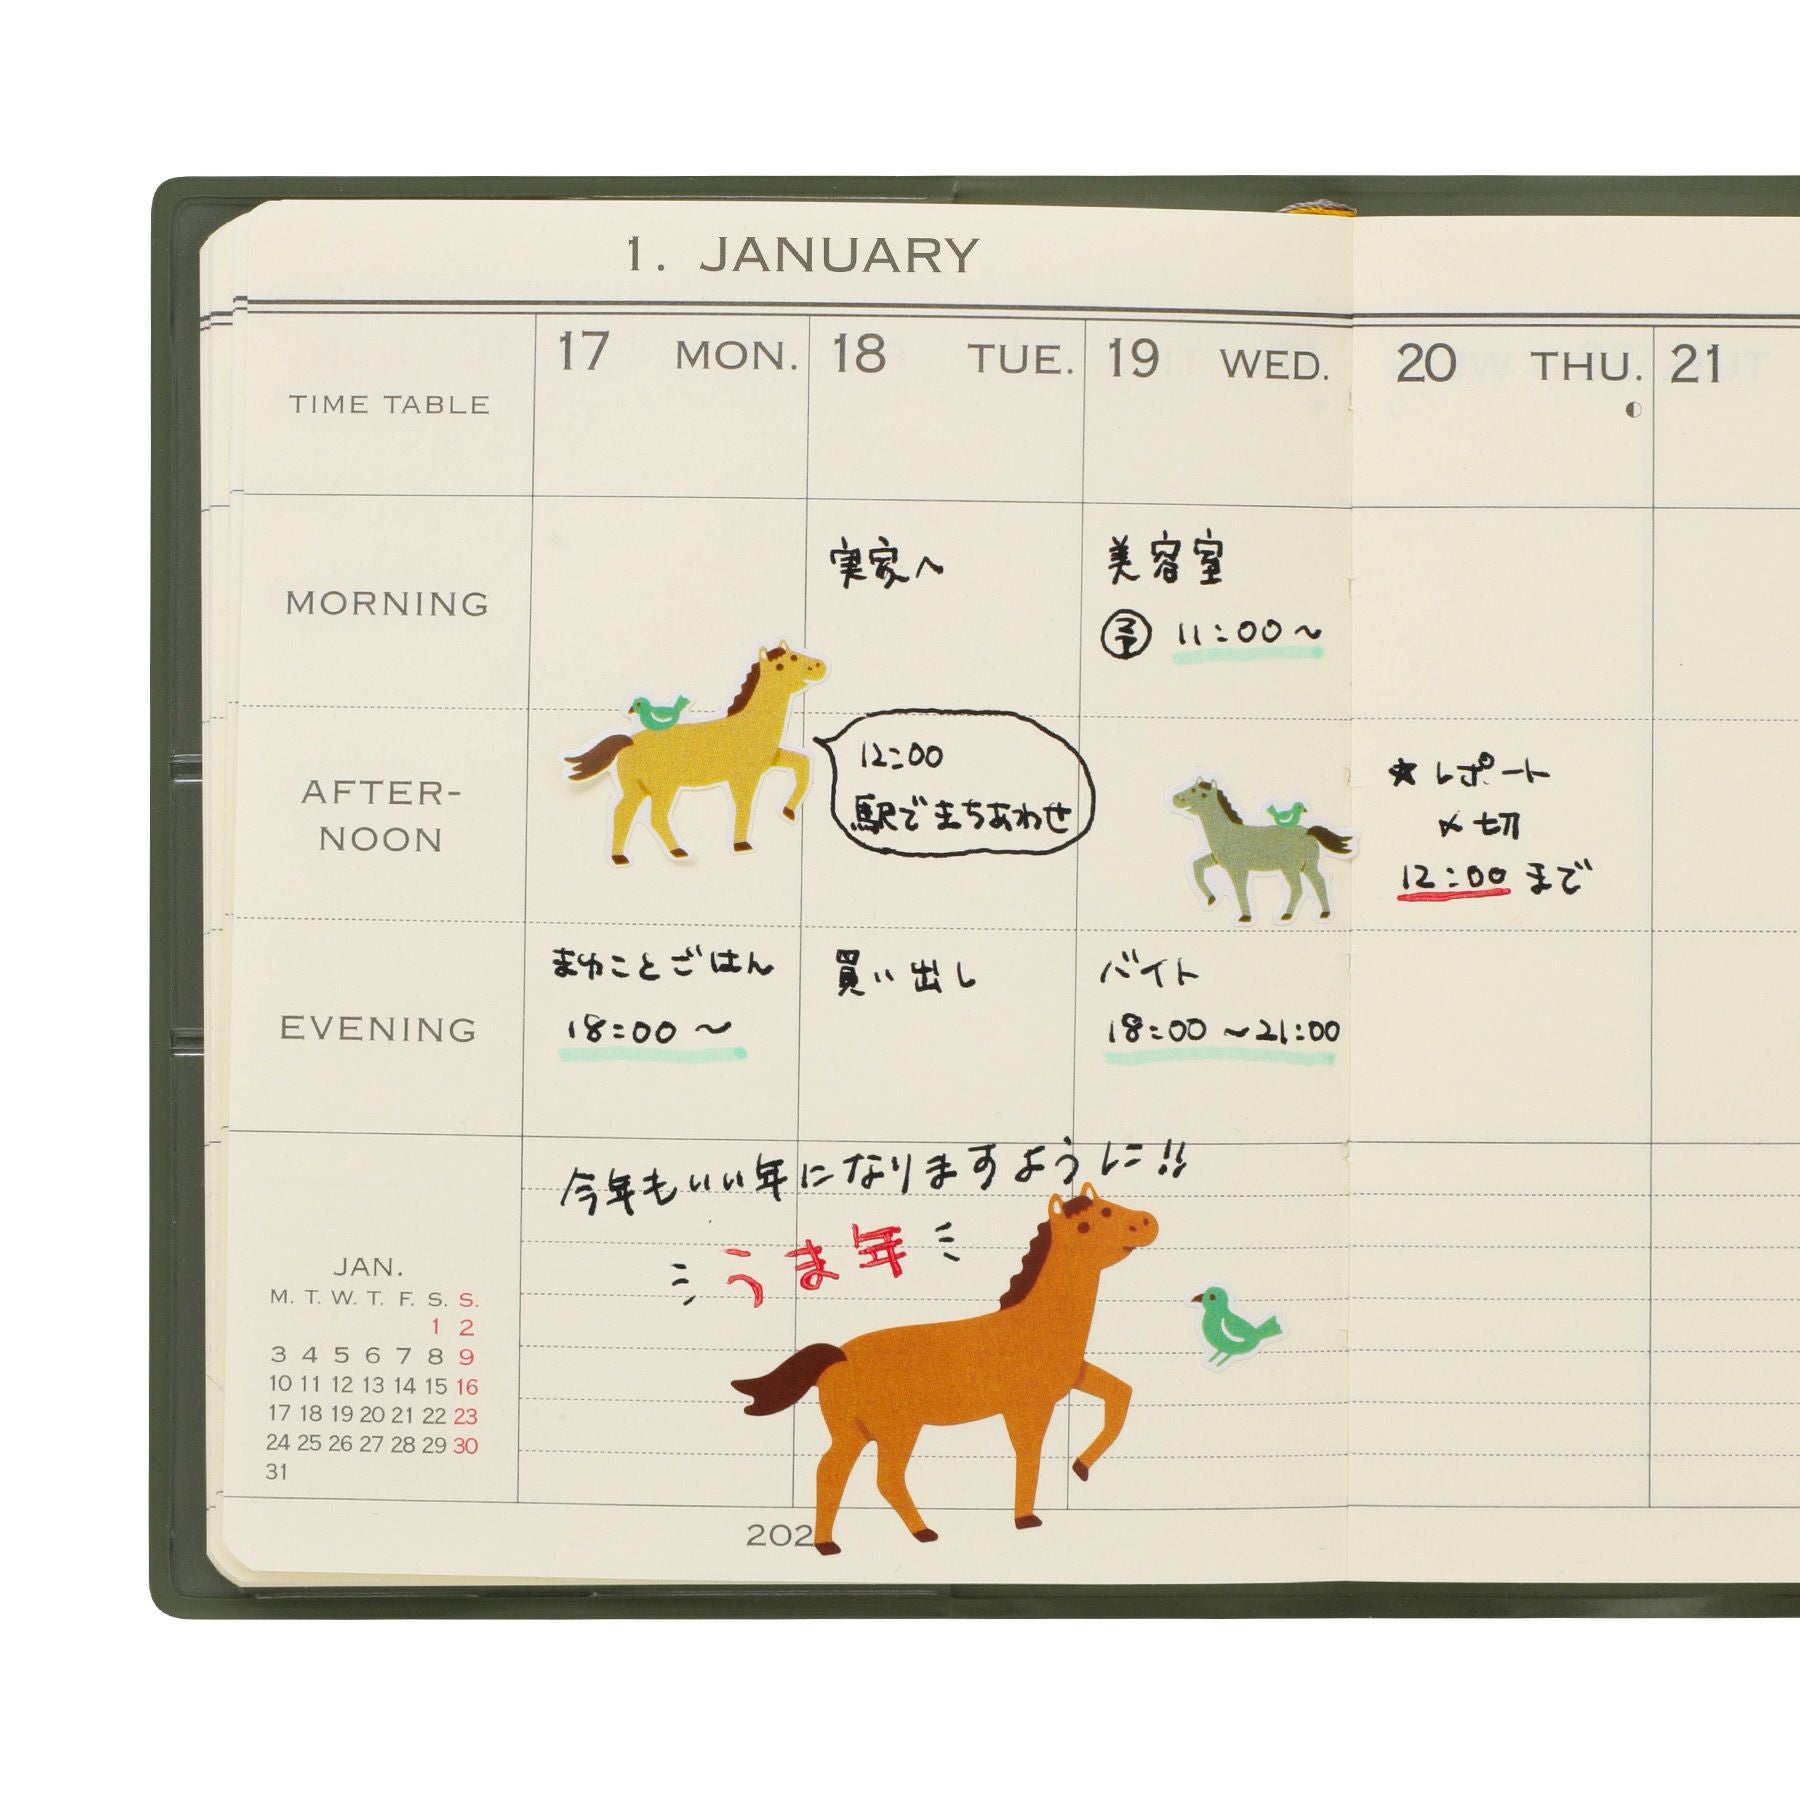 1. JANUARY
17 MON. 18 TUE. 19 WED. 20 THU. 21
TIME TABLE
MORNING
実家へ
美容室
予 11:00〜
AFTER-
NOON
12:00
駅でまちあわせ
★レポート
〆切
12:00 まで
EVENING
まゆことごはん
18:00 〜
買い出し
バイト
18:00 〜21:00
今年もいい年になりますように!!
うま年
JAN.
M. T. W. T. F. S. S.
1 2
3 4 5 6 7 8 9
10 11 12 13 14 15 16
17 18 19 20 21 22 23
24 25 26 27 28 29 30
31
202